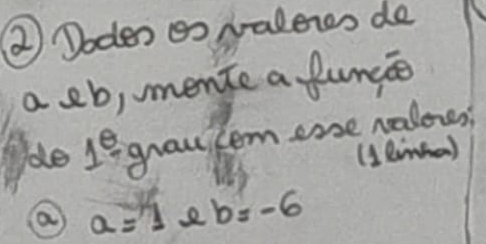 ② Dados os valores de
a e b, monte a função
do 1º grau com esse valores:
(1 linha)
ⓐ a = 1 e b = -6